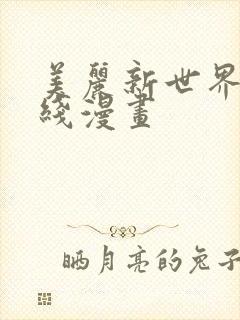 美麗新世界
綫漫畫
晒月亮的兔子